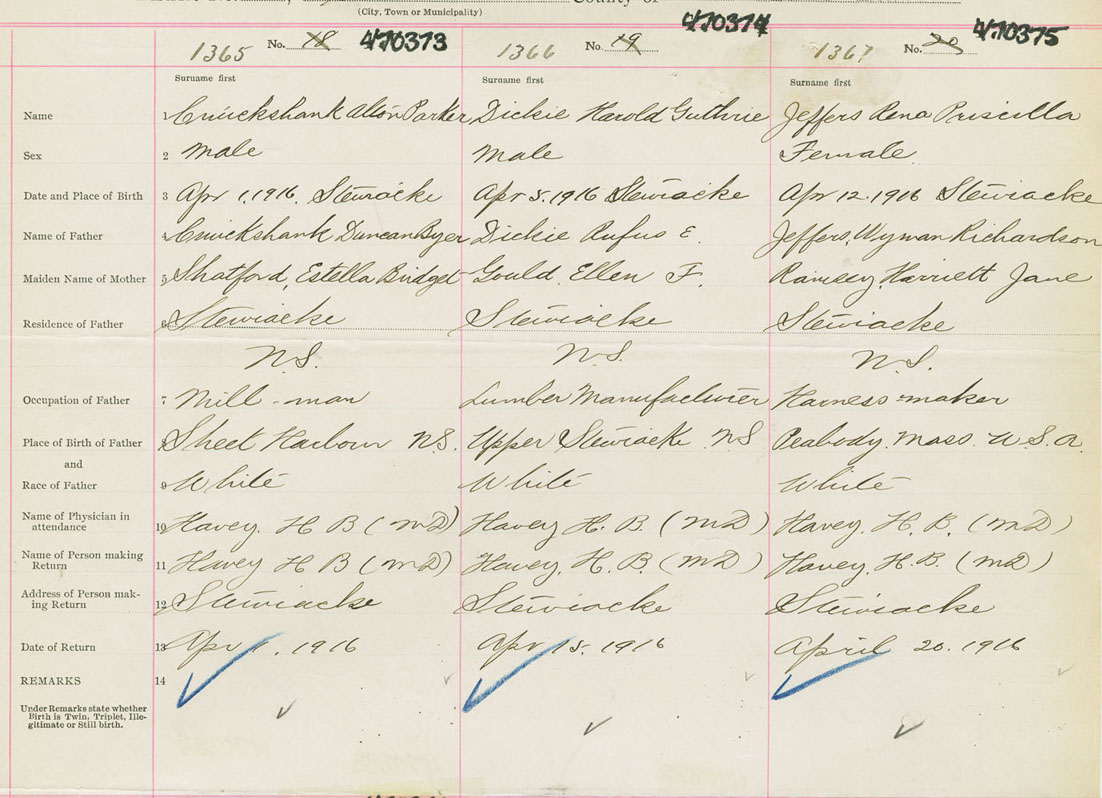 County of
(City, Town or Municipality)
1365 No. 18 470373 1366 No. 19 470374 1367 No. 20 470375
Surname first Surname first Surname first
Name 1 Cruickshank Alton Parker Dickie Harold Guthrie Jeffers Rena Priscilla
Sex 2 Male Male Female
Date and Place of Birth 3 Apr 1, 1916. Stewiacke Apr 5. 1916 Stewiacke Apr 12. 1916 Stewiacke
Name of Father 4 Cruickshank Duncan Byer Dickie Rufus E. Jeffers, Wyman Richardson
Maiden Name of Mother 5 Shatford, Estella Bridget Gould, Ellen F. Ramsey, Harriett Jane
Residence of Father 6 Stewiacke Stewiacke Stewiacke
N.S. N.S. N.S.
Occupation of Father 7 Mill-man Lumber Manufacturer Harness-maker
Place of Birth of Father 8 Sheet Harbour N.S. Upper Stewiacke N.S Peabody, Mass. U.S.A.
and
Race of Father 9 White White White
Name of Physician in attendance 10 Havey. H B (MD) Havey H. B. (MD) Havey, H. B. (MD)
Name of Person making Return 11 Havey H B (MD) Havey, H. B. (MD) Havey, H. B. (MD)
Address of Person making Return 12 Stewiacke Stewiacke Stewiacke
Date of Return 13 Apr 1, 1916 Apr 15. 1916 April 20. 1916
REMARKS 14
Under Remarks state whether
Birth is Twin, Triplet, Ille-
gitimate or Still birth.